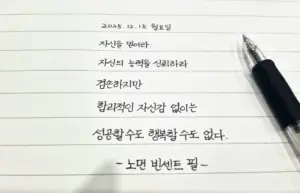 2025. 12. 15. 월요일
자신을 믿어라.
자신의 능력을 신뢰하라
겸손하지만
합리적인 자신감 없이는
성공할 수도 행복할 수도 없다.
- 노먼 빈센트 필 -